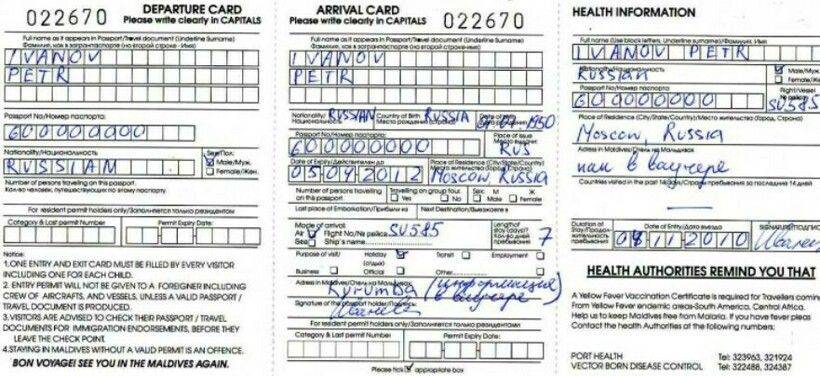 DEPARTURE CARD
Please write clearly in CAPITALS
022670
Full name as it appears in Passport/Travel document (Underline Surname)
Фамилия, имя в загранпаспорте (на второй строке - Имя)
IVANOV
PETR
Passport No/Номер паспорта:
600000000
Nationality/Национальность
RUSSIAN
Sex/Пол:
Male/Муж.
Female/Жен.
Number of persons travelling on this passport.
Кол-во человек, путешествующих по этому паспорту.
For resident permit holders only/Заполняется только резидентом
Category & Last permit Number
Permit Expiry Date:
Notice:
1.ONE ENTRY AND EXIT CARD MUST BE FILLED BY EVERY VISITOR
INCLUDING ONE FOR EACH CHILD.
2. ENTRY PERMIT WILL NOT BE GIVEN TO A FOREIGNER INCLUDING
CREW OF AIRCRAFTS, AND VESSELS, UNLESS A VALID PASSPORT /
TRAVEL DOCUMENT IS PRODUCED.
3.VISITORS ARE ADVISED TO CHECK THEIR PASSPORT / TRAVEL
DOCUMENTS FOR IMMIGRATION ENDORSEMENTS, BEFORE THEY
LEAVE THE CHECK POINT.
4.STAYING IN MALDIVES WITHOUT A VALID PERMIT IS AN OFFENCE.
BON VOYAGE! SEE YOU IN THE MALDIVES AGAIN.
ARRIVAL CARD
Please write clearly in CAPITALS
022670
Full name as it appears in Passport/Travel document (Underline Surname)
Фамилия, имя в загранпаспорте (на второй строке - Имя)
IVANOV
PETR
Nationality/ RUSSIAN Country of Birth RUSSIA Date of 1950
Национальность Место рождения (страна)
Passport No/Номер паспорта:
600000000
Place of Issue
RUS
Date of Expiry/Действителен до
05042012
Place of Residence (City/State/Country)
Место жительства (Город, Страна)
Moscow RUSSIA
Number of persons travelling
on this passport.
Travelling on group tour.
Yes No
Sex: М Ж
Male Female
Last place of Embarkation/Прибыли из
Next Destination/Выезжаете в
Mode of arrival:
Air Flight No/№ рейса SU585
Sea Ship's name
Length of
stay (days)?
Кол-во дней
пребывания
7
Purpose of visit/ Holiday Transit Employment
(отдых)
Business Official Other
Adress in Maldives/Отель на Мальдивах
Kurumba (информация
в ваучере)
Signature of the passport holder/Подпись:
Иванов
For resident permit holders only/Заполняется только резидентом
Category & Last permit Number
Permit Expiry Date:
Please tick appropriate box
HEALTH INFORMATION
Full name (Use block letters, Underline surname)/Фамилия, Имя
IVANOV PETR
Nationality/Национальность
Russian
Male/Муж.
Female/Же
600000000
Flight/Vessel
№ рейса
SU585
Place of Residence (City/State/Country)/Место жительства (Город, Страна)
Moscow, Russia
Adress in Maldives/Отель на Мальдивах
в ваучере
Countries visited in the past 14 days/Страны пребывания за последние 14 дней
Duration of
Stay/Продол-
жительность
пребывания
Date of Entry/Дата въезда
08112010
SIGNATURE/ПОДПИС
Иванов
HEALTH AUTHORITIES REMIND YOU THAT
A Yellow Fever Vaccination Certificate is required for Travellers comin
From Yellow Fever endemic areas-South America, Central Africa.
Help us to Keep Maldives free from Malaria. If you have fever pleas
Contact the health Authorities at the following numbers:
PORT HEALTH Tel: 323963, 321924
VECTOR BORN DISEASE CONTROL Tel: 322488, 324387